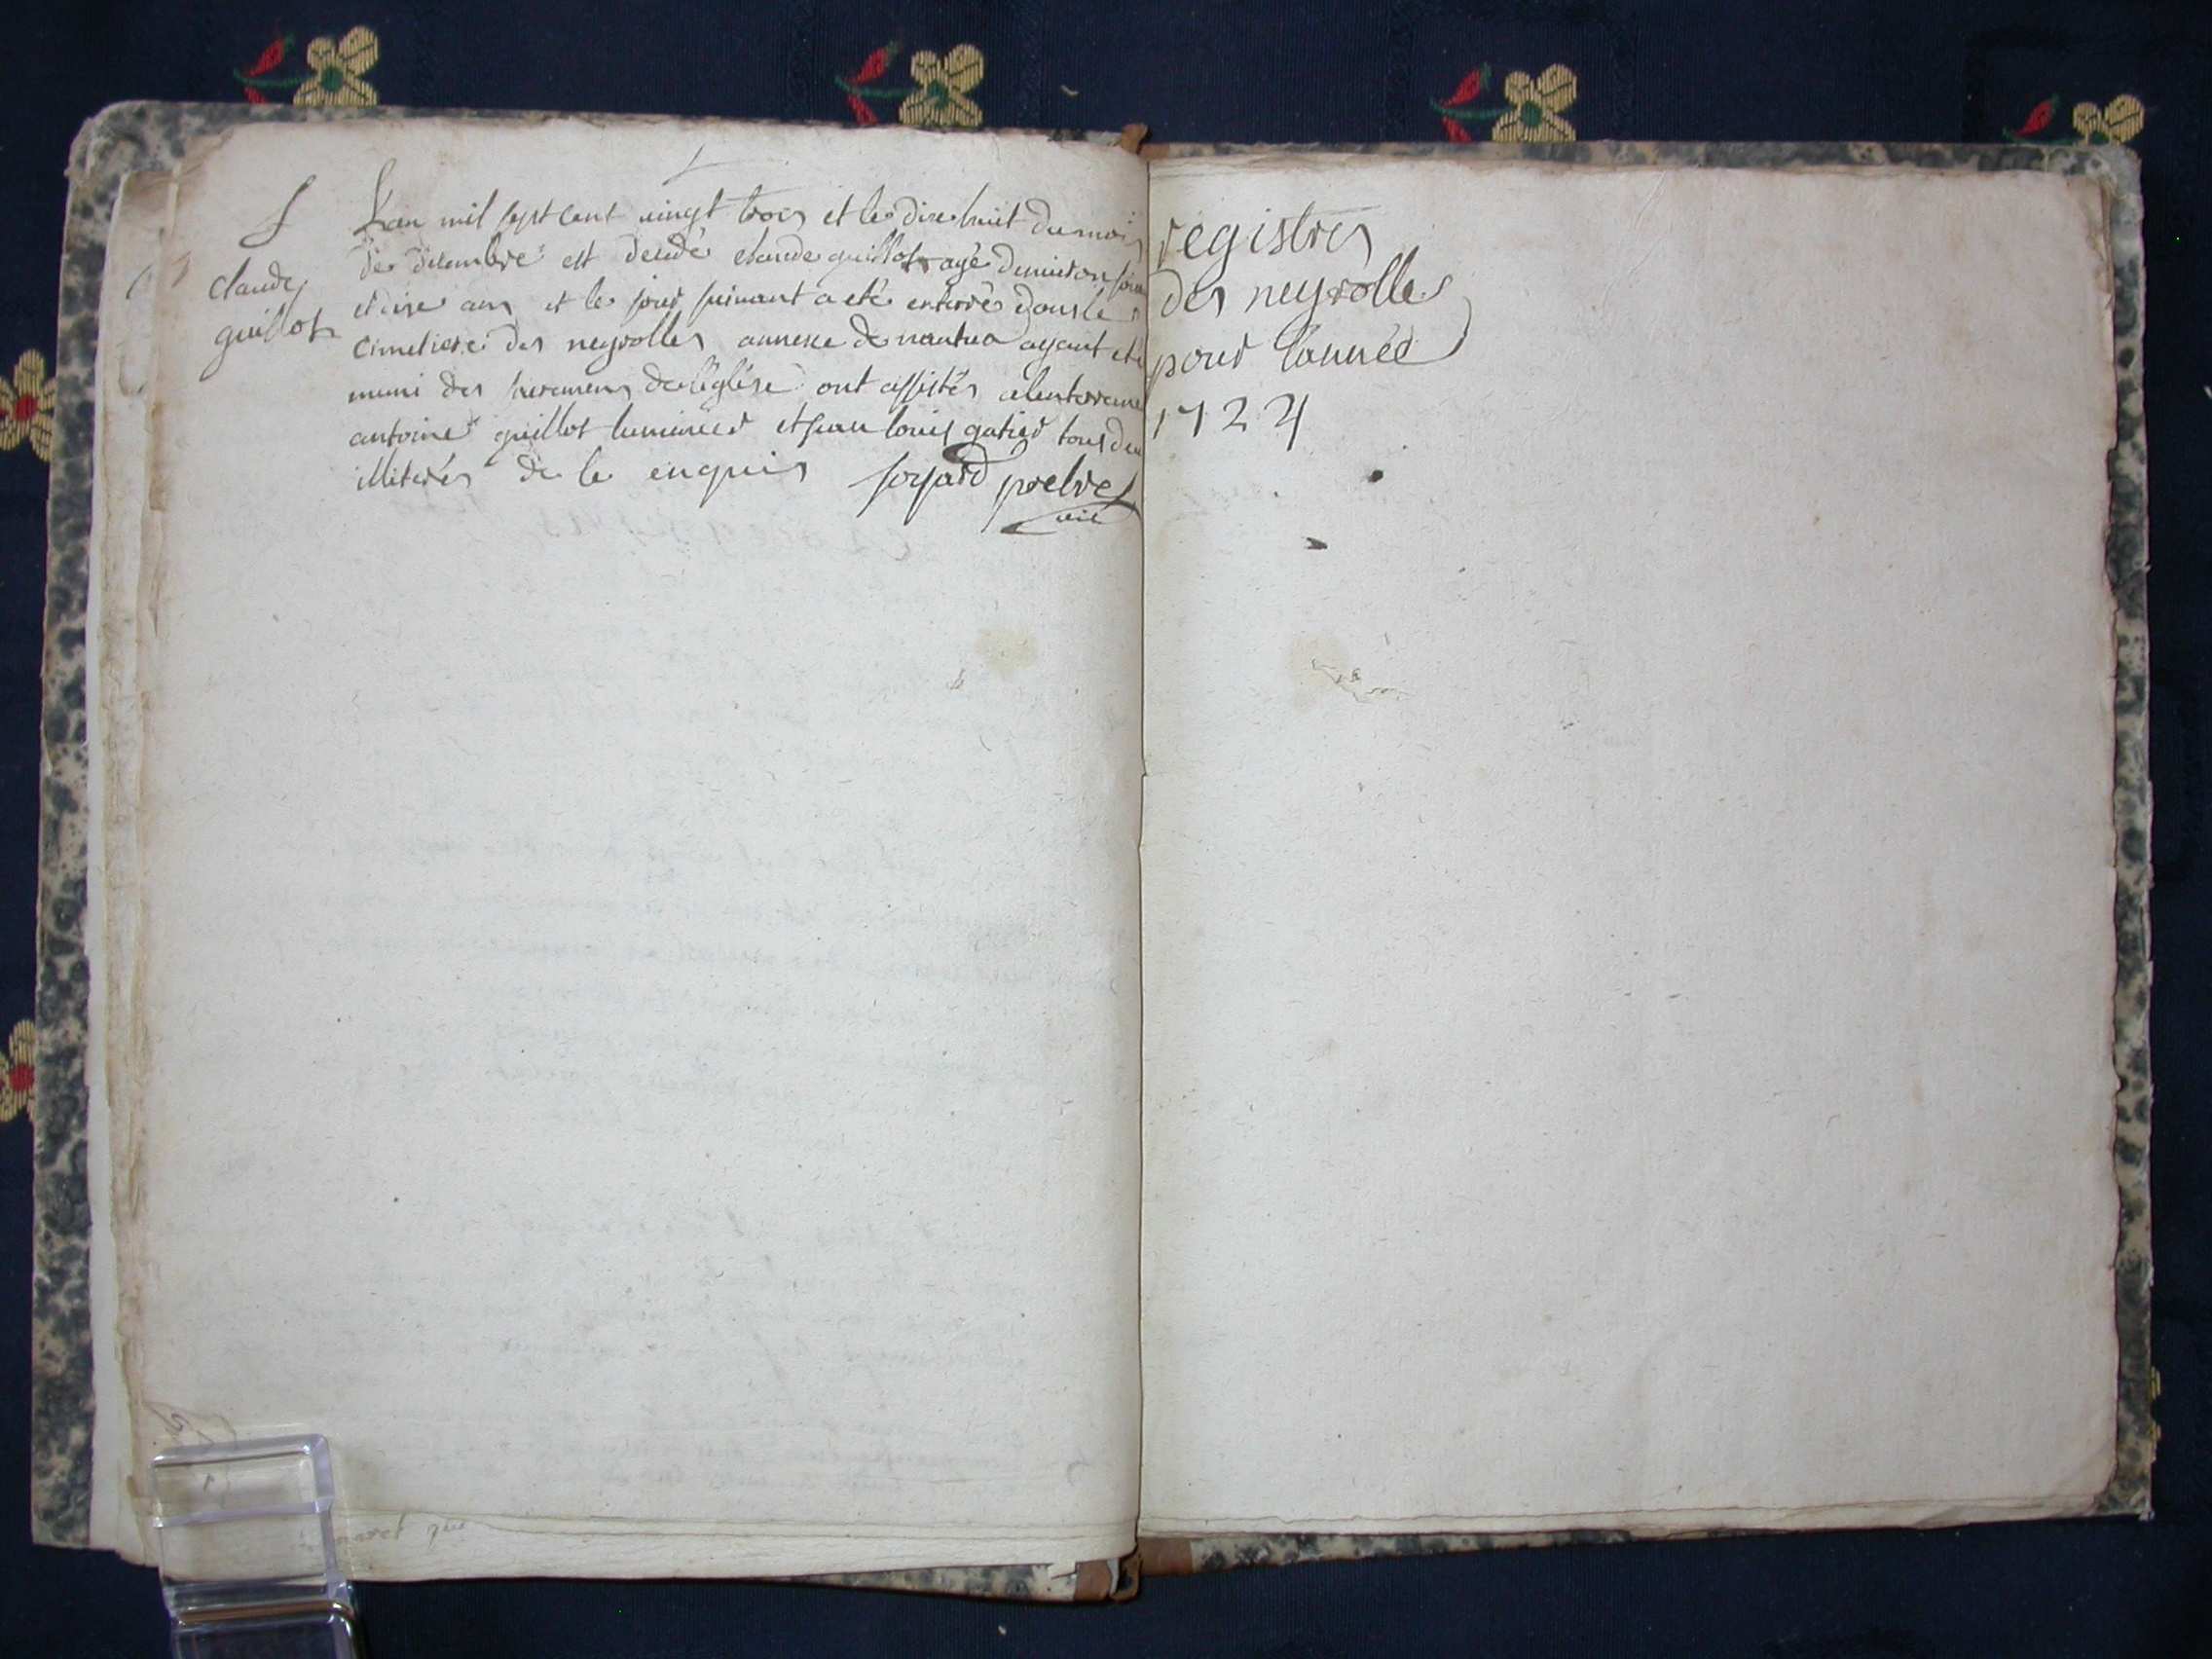 S
claude
guillot
L'an mil sept cent vingt trois et le dixe huit du mois
de decembre est decedé claude guillot agé d'environ soix
et dixe ans et le jour suivant a eté enterré dans le
cimetiere des neyrolles annexe de nantua ayant eté
muni des sacremens de l'église ont assistés a l'enterreme
antoine guillot luminier et jean louis gatier tous deux
illiterés de ce enquis soyard prebtre
vic
registres
des neyrolles
pour l'année
1724